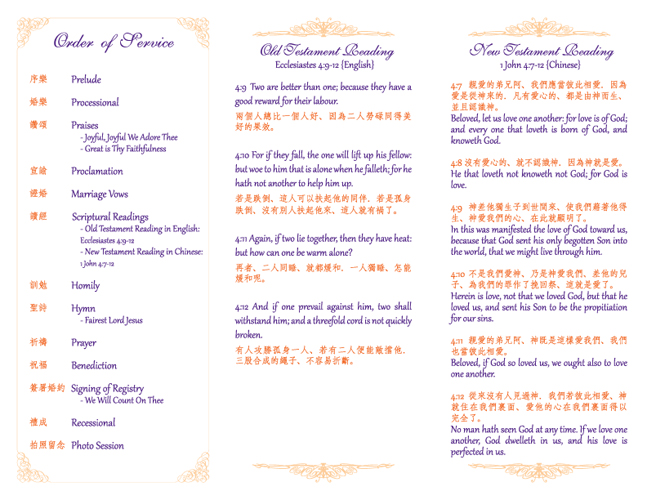 Order of Service
序樂 Prelude
婚樂 Processional
讚頌 Praises
- Joyful, Joyful We Adore Thee
- Great is Thy Faithfulness
宣諭 Proclamation
證婚 Marriage Vows
讀經 Scriptural Readings
- Old Testament Reading in English:
Ecclesiastes 4:9-12
- New Testament Reading in Chinese:
1 John 4:7-12
訓勉 Homily
聖詩 Hymn
- Fairest Lord Jesus
祈禱 Prayer
祝福 Benediction
簽署婚約 Signing of Registry
- We Will Count On Thee
禮成 Recessional
拍照留念 Photo Session
Old Testament Reading
Ecclesiastes 4:9-12 {English}
4:9 Two are better than one; because they have a
good reward for their labour.
兩個人總比一個人好、因為二人勞碌同得美
好的果效。
4:10 For if they fall, the one will lift up his fellow:
but woe to him that is alone when he falleth; for he
hath not another to help him up.
若是跌倒、這人可以扶起他的同伴．若是孤身
跌倒、沒有別人扶起他來、這人就有禍了。
4:11 Again, if two lie together, then they have heat:
but how can one be warm alone?
再者、二人同睡、就都煖和．一人獨睡、怎能
煖和呢。
4:12 And if one prevail against him, two shall
withstand him; and a threefold cord is not quickly
broken.
有人攻勝孤身一人、若有二人便能敵擋他．
三股合成的繩子、不容易折斷。
New Testament Reading
1 John 4:7-12 {Chinese}
4:7 親愛的弟兄阿、我們應當彼此相愛．因為
愛是從神來的．凡有愛心的、都是由神而生、
並且認識神。
Beloved, let us love one another: for love is of God;
and every one that loveth is born of God, and
knoweth God.
4:8 沒有愛心的、就不認識神．因為神就是愛。
He that loveth not knoweth not God; for God is
love.
4:9 神差他獨生子到世間來、使我們藉著他得
生、神愛我們的心、在此就顯明了。
In this was manifested the love of God toward us,
because that God sent his only begotten Son into
the world, that we might live through him.
4:10 不是我們愛神、乃是神愛我們、差他的兒
子、為我們的罪作了挽回祭、這就是愛了。
Herein is love, not that we loved God, but that he
loved us, and sent his Son to be the propitiation
for our sins.
4:11 親愛的弟兄阿、神既是這樣愛我們、我們
也當彼此相愛。
Beloved, if God so loved us, we ought also to love
one another.
4:12 從來沒有人見過神．我們若彼此相愛、神
就住在我們裏面、愛他的心在我們裏面得以
完全了。
No man hath seen God at any time. If we love one
another, God dwelleth in us, and his love is
perfected in us.